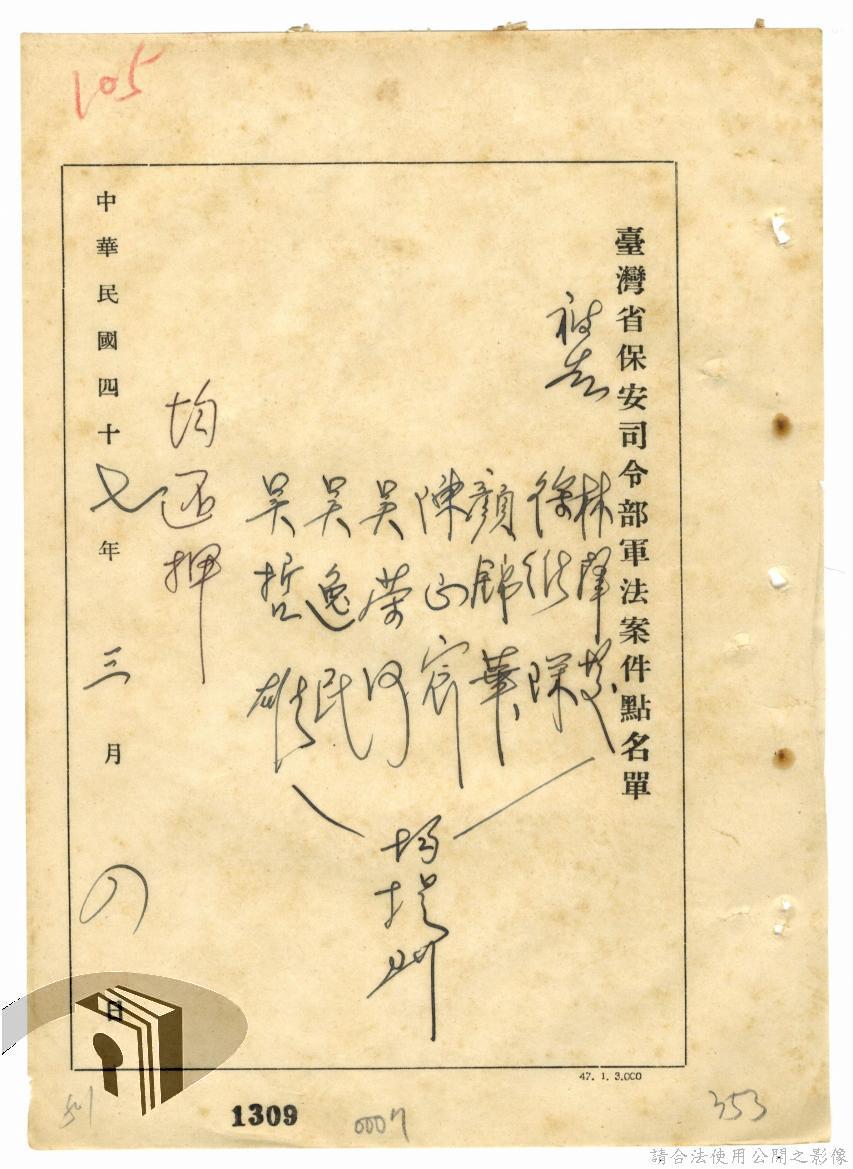 105
臺灣省保安司令部軍法案件點名單
被告
林擇芝
徐經琛
顏錦華
陳正宸
吳榮河
吳逸民
吳哲雄
均提到
均還押
中華民國四十七年三月四日
47. 1. 3.000
1309
0007
353
請合法使用公開之影像